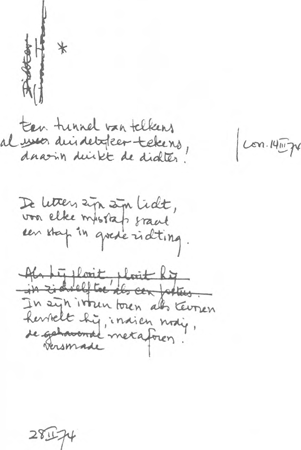 Dichter
ivoren toren
*
Een tunnel van telkens
al duidelijker tekens,
daarin duikt de dichter.
con. 14 III 74
De letters zijn zijn licht,
voor elke misstap staat
een stap in goede richting.
Als hij plooit, plooit hij
in zichzelf toe als een
In zijn ivoren toren als tevoren
herstelt hij, indien nodig,
de gehavende metaforen.
versmade
28 II 74